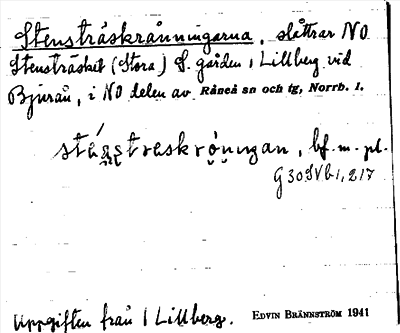 Stensträskrånningarna, slåttrar NO
Stensträsket (Stora) S. gården i Lillberg vid
Bjurån, i NO delen av Råneå sn och tg, Norrb. l.
bf. m. pl.
G 30SVb1, 217
Uppgiften från 1 Lillberg. EDVIN BRÄNNSTRÖM 1941